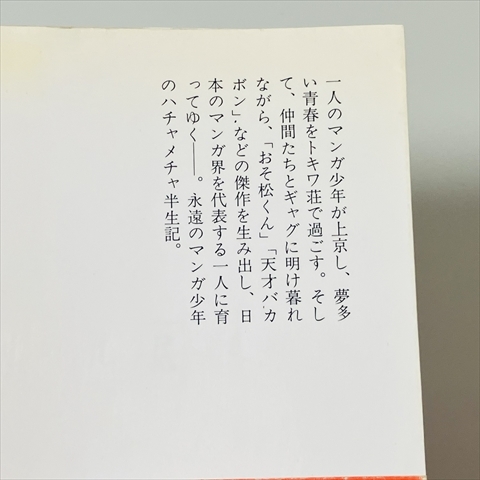 一人のマンガ少年が上京し、夢多
い青春をトキワ荘で過ごす。そし
て、仲間たちとギャグに明け暮れ
ながら、「おそ松くん」「天才バカ
ボン」などの傑作を生み出し、日
本のマンガ界を代表する一人に育
ってゆく――。永遠のマンガ少年
のハチャメチャ半生記。